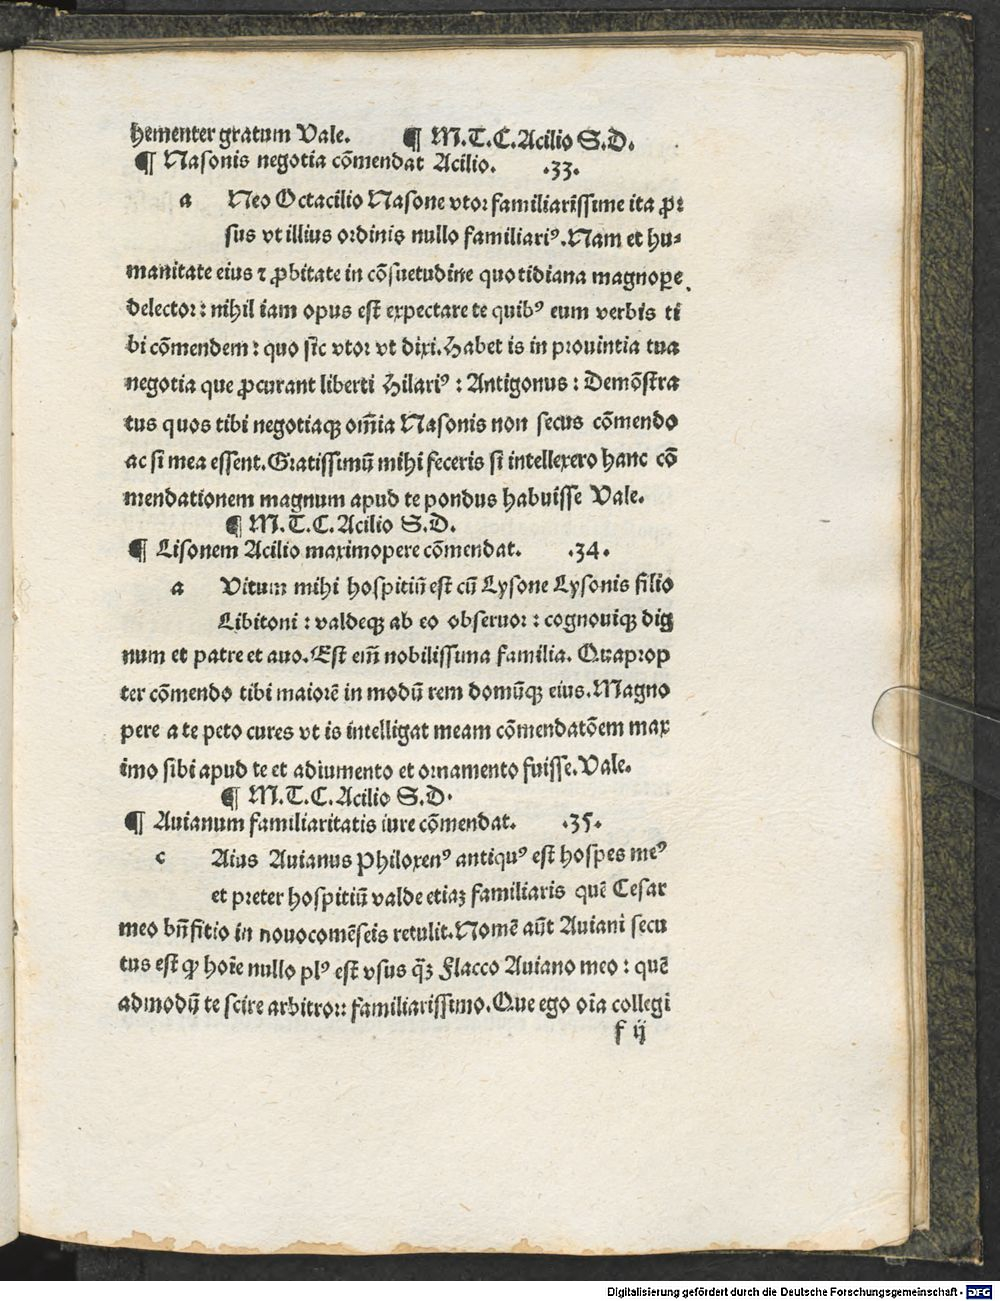 hementer gratum Vale. ¶ M.T.C. Acilio S.D.
¶ Nasonis negotia cōmendat Acilio. .33.
a Neo Octacilio Nasone vtor familiarissime ita ꝓ⸗
sus vt illius ordinis nullo familiariꝰ. Nam et hu⸗
manitate eius ⁊ ꝓbitate in cōsuetudine quotidiana magnoꝑe
delector: nihil iam opus est̄ expectare te quibꝰ eum verbis ti
bi cōmendem: quo sīc vtor vt dixi. Habet is in prouintia tua
negotia que ꝓcurant liberti Hilariꝰ: Antigonus: Demōstra
tus quos tibi negotiaqꝫ om̄ia Nasonis non secus cōmendo
ac si mea essent. Gratissimū mihi feceris si intellexero hanc cō
mendationem magnum apud te pondus habuisse Vale.
¶ M.T.C. Acilio S.D.
¶ Lisonem Acilio maximopere cōmendat. .34.
a Vitum mihi hospitiū est cū Lysone Lysonis filio
Libitoni: valdeqꝫ ab eo obseruor: cognouiqꝫ dig
num et patre et auo. Est em̄ nobilissima familia. Quaprop
ter cōmendo tibi maiorē in modū rem domūqꝫ eius. Magno
pere a te peto cures vt is intelligat meam cōmendatōem max
imo sibi apud te et adiumento et ornamento fuisse. Vale.
¶ M.T.C. Acilio S.D.
¶ Auianum familiaritatis iure cōmendat. .35.
c Aius Auianus Philoxenꝰ antiquꝰ est̄ hospes meꝰ
et preter hospitiū valde etiaꝫ familiaris quē Cesar
meo bn̄fitio in nouocomēseis retulit. Nomē aūt Auiani secu
tus est ꝙ hoīe nullo plꝰ est̄ vsus q̄ꝫ Flacco Auiano meo: quē
admodū te scire arbitror: familiarissimo. Que ego oīa collegi
f ij
Digitalisierung gefördert durch die Deutsche Forschungsgemeinschaft - DFG